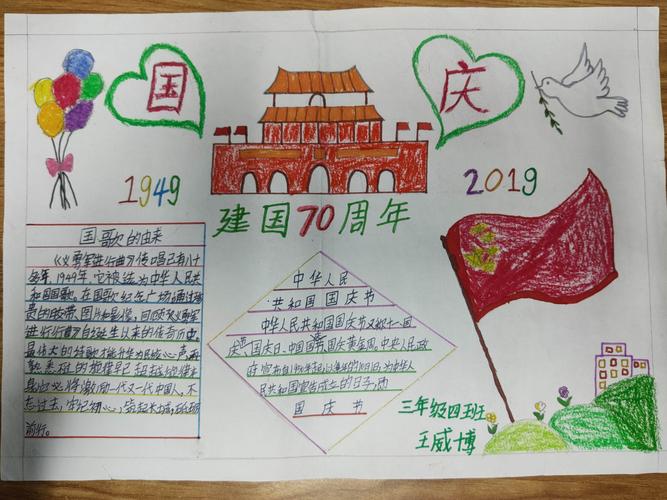 国
庆
1949
2019
建国70周年
国歌的由来
《义勇军进行曲》传唱已有八十
多年，1949年，它被选为中华人民共
和国国歌。在国歌纪念广场，通过
贵的胶带、图片和影像，回顾《义勇军
进行曲》自诞生以来的传奇历史。
最伟大的
一代又一代中国人，不
忘过去，牢记初心，筑起长城，砥砺
前行。
中华人民
共和国国庆节
中华人民共和国国庆节又称十一、国
庆节、国庆日、中国国庆节、国庆黄金周。中央人民政
府宣布自1949年起，以每年的10月1日为中华人
民共和国宣告成立的日子，即
国庆节
三年级四班
王威博